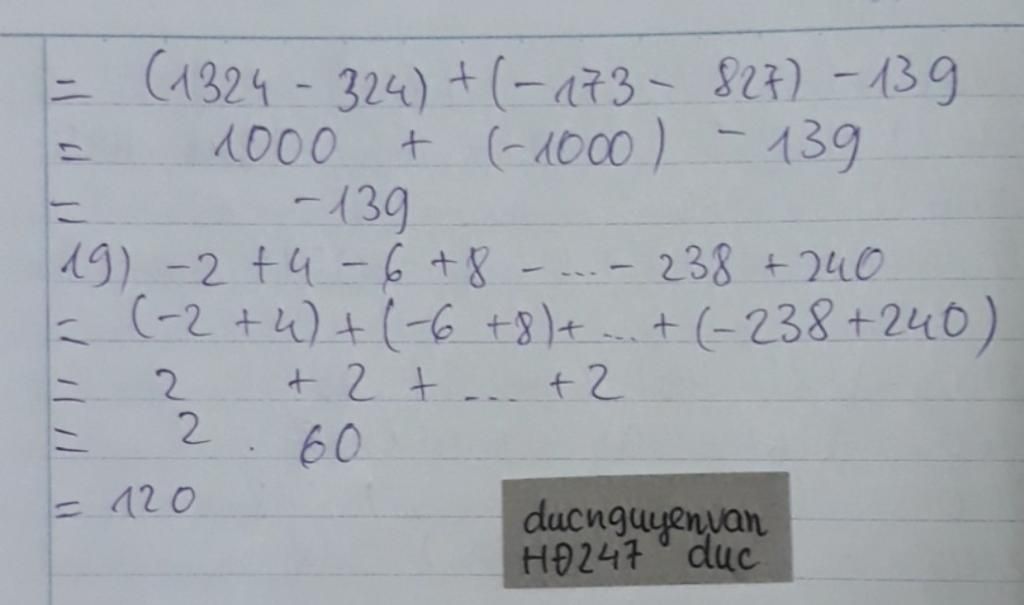 = (1324 - 324) + (-173 - 827) - 139
= 1000 + (-1000) - 139
= -139
19) -2 + 4 - 6 + 8 - ... - 238 + 240
= (-2 + 4) + (-6 + 8) + ... + (-238 + 240)
= 2 + 2 + ... + 2
= 2 . 60
= 120
ducnguyenvan
HĐ247 duc